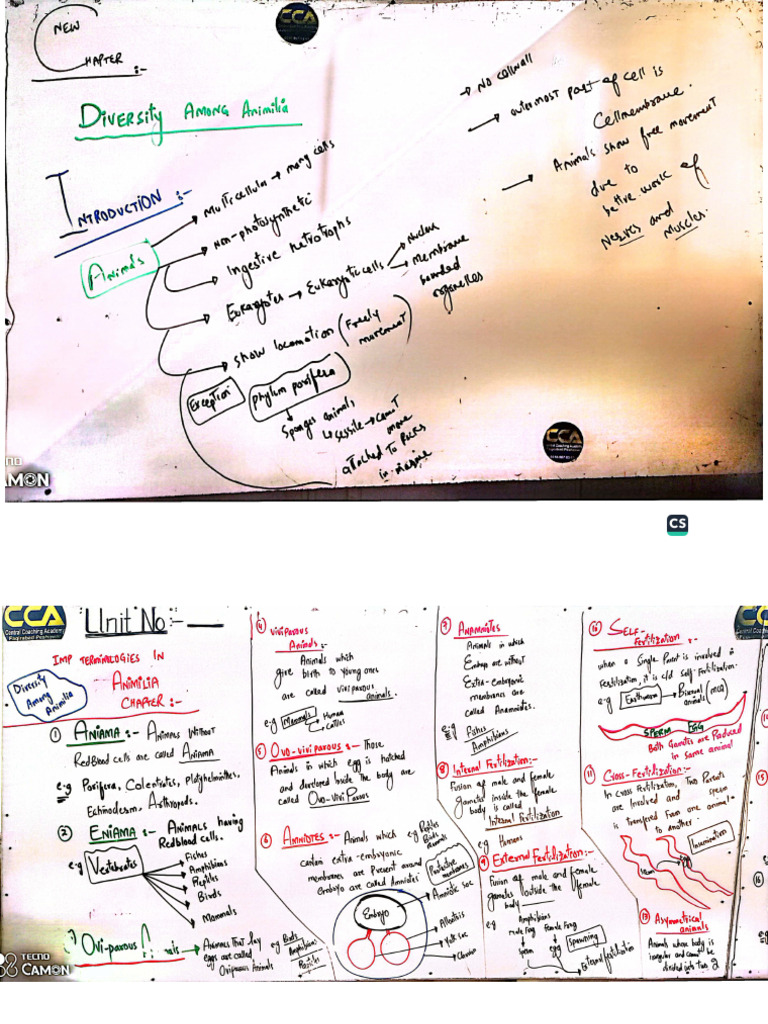 NEW
CHAPTER :-
CCA
DIVERSITY AMONG Animilia
INTRODUCTION :-
Animals
Multicellular → many cells
non-photosynthetic
Ingestive hetrotrophs
Eukaryotes → Eukaryotic cells
Nucleus
membrane
bounded
organelles
Show locomotion (Freely
movement)
Exception
Phylum porifera
Sponges animals
sessile → cannot
move
attached to Rocks
in marine
→ No cellwall
→ outermost part of cell is
Cellmembrane.
→ Animals show free movement
due to
better work of
Nerves and
Muscles.
CCA
CAMON
CS
CCA
Central Coaching Academy
Unit No:-
IMP TERMINILOGIES IN
ANIMILIA
CHAPTER :-
Diversity
Among
Animilia
① ANIAMA :- ANIMALS WITHOUT
RedBlood cells are called ANIAMA
e.g Porifera, Colentrates, platyhelminthes,
Echinoderm, Arthropods.
② ENIAMA :- ANIMALS having
Redblood cells.
e.g Vertebrates
Fishes
Amphibians
Reptiles
Birds
Mammals
Ovi-parous
→ Animals that lay
eggs are called
Oviparous Animals
e.g Birds
Amphibians
Reptiles
TECNO
CAMON
④ VIVIPAROUS
Animals :-
Animals which
give birth to young ones
are called viviparous
animals.
e.g Mammals
Human
Cattles
⑤ OVO-VIVIPAROUS :- Those
Animals in which egg is hatched
and developed inside the body are
called OVO-VIVIPAROUS
⑥ AMNIOTES :- Animals which
contain extra-embryonic
membranes are Present around
Embryo are called Amniotes
e.g Reptiles
Birds
Mammals
Protective
membranes
Embryo
Amniotic Sac
Allantois
Yolk Sac
Chorion
⑦ ANAMNIOTES
Animals in which
Embryo are without
Extra-embryonic
membranes are
called Anamniotes.
e.g Fishes
Amphibians
⑧ Internal Fertilization:-
Fusion of male and female
gametes inside the female
body is called
Internal Fertilization
e.g Humans
⑨ External Fertilization:-
Fusion of male and female
gametes outside the female
body
e.g Amphibians
male Frog Female Frog
Sperm egg Spawning
External fertilization
⑩ SELF-
Fertilization :-
when a Single Parent is involved in
Fertilization, it is c/d Self-Fertilization.
e.g Earthworm → Bisexual
animals (MCQ)
SPERM EGG
Both Gametes are Produced
in same animal
⑪ Cross-Fertilization:-
In cross Fertilization, Two Parents
are Involved and sperm
is transferred From one animal
to another.
Insemination
Sperm
egg
Asymmetrical
animals
Animals whose body is
irregular and cannot be
divided into two 2